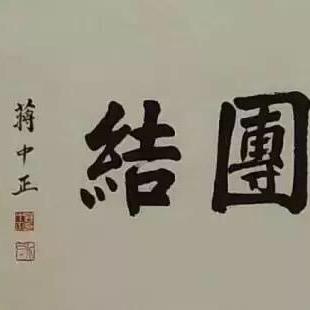 團結
蔣中正